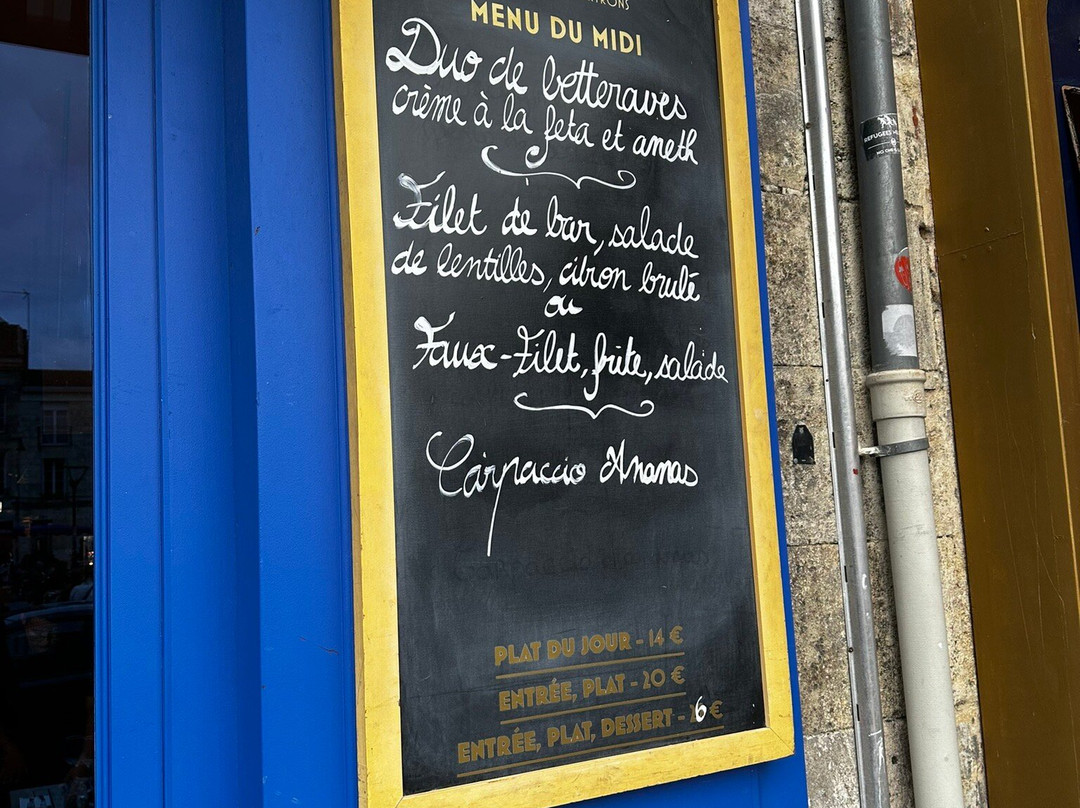 MENU DU MIDI
Duo de betteraves
crème à la feta et aneth
Filet de bar, salade
de lentilles, citron brulé
ou
Faux-Filet, frite, salade
Carpaccio Ananas
PLAT DU JOUR - 14 €
ENTRÉE, PLAT - 20 €
ENTRÉE, PLAT, DESSERT - 26 €
REFUGEES